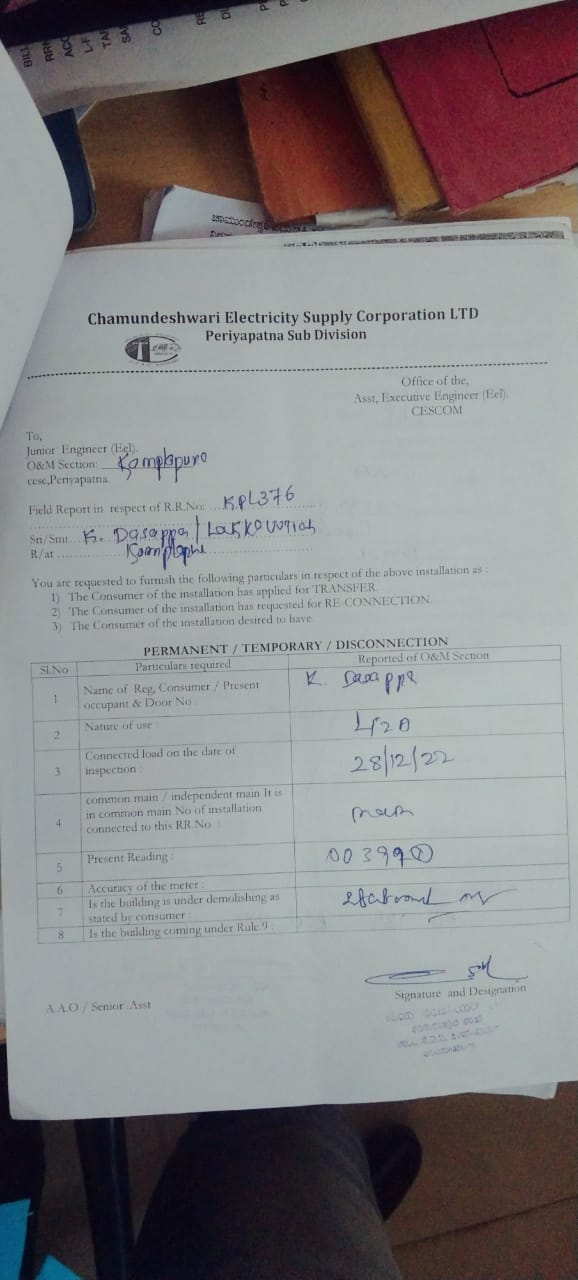 BILL
RRN
ACC
L-F
TA
SA
CO
RE
DU
ಚಾಮುಂಡೇಶ್ವರಿ
Chamundeshwari Electricity Supply Corporation LTD
Periyapatna Sub Division
Office of the,
Asst, Executive Engineer (Eel).
CESCOM
To,
Junior Engineer (Eel).
O&M Section: Kamplapura
cesc,Periyapatna.
Field Report in respect of R.R.No: KPL376
Sri/Smt K. Dasappa /
R/at
You are requested to furnish the following particulars in respect of the above installation as :
1) The Consumer of the installation has applied for TRANSFER
2) The Consumer of the installation has requested for RE-CONNECTION.
3) The Consumer of the installation desired to have
PERMANENT / TEMPORARY / DISCONNECTION
Sl.No Particulars required Reported of O&M Section
1 Name of Reg, Consumer / Present occupant & Door No K. Dasappa
2 Nature of use
3 Connected load on the date of inspection : 28/12/22
4 common main / independent main It is in common main No of installation connected to this RR.No : main
5 Present Reading :
6 Accuracy of the meter :
7 Is the building is under demolishing as stated by consumer :
8 Is the building coming under Rule.9 :
A.A.O / Senior .Asst
Signature and Designation